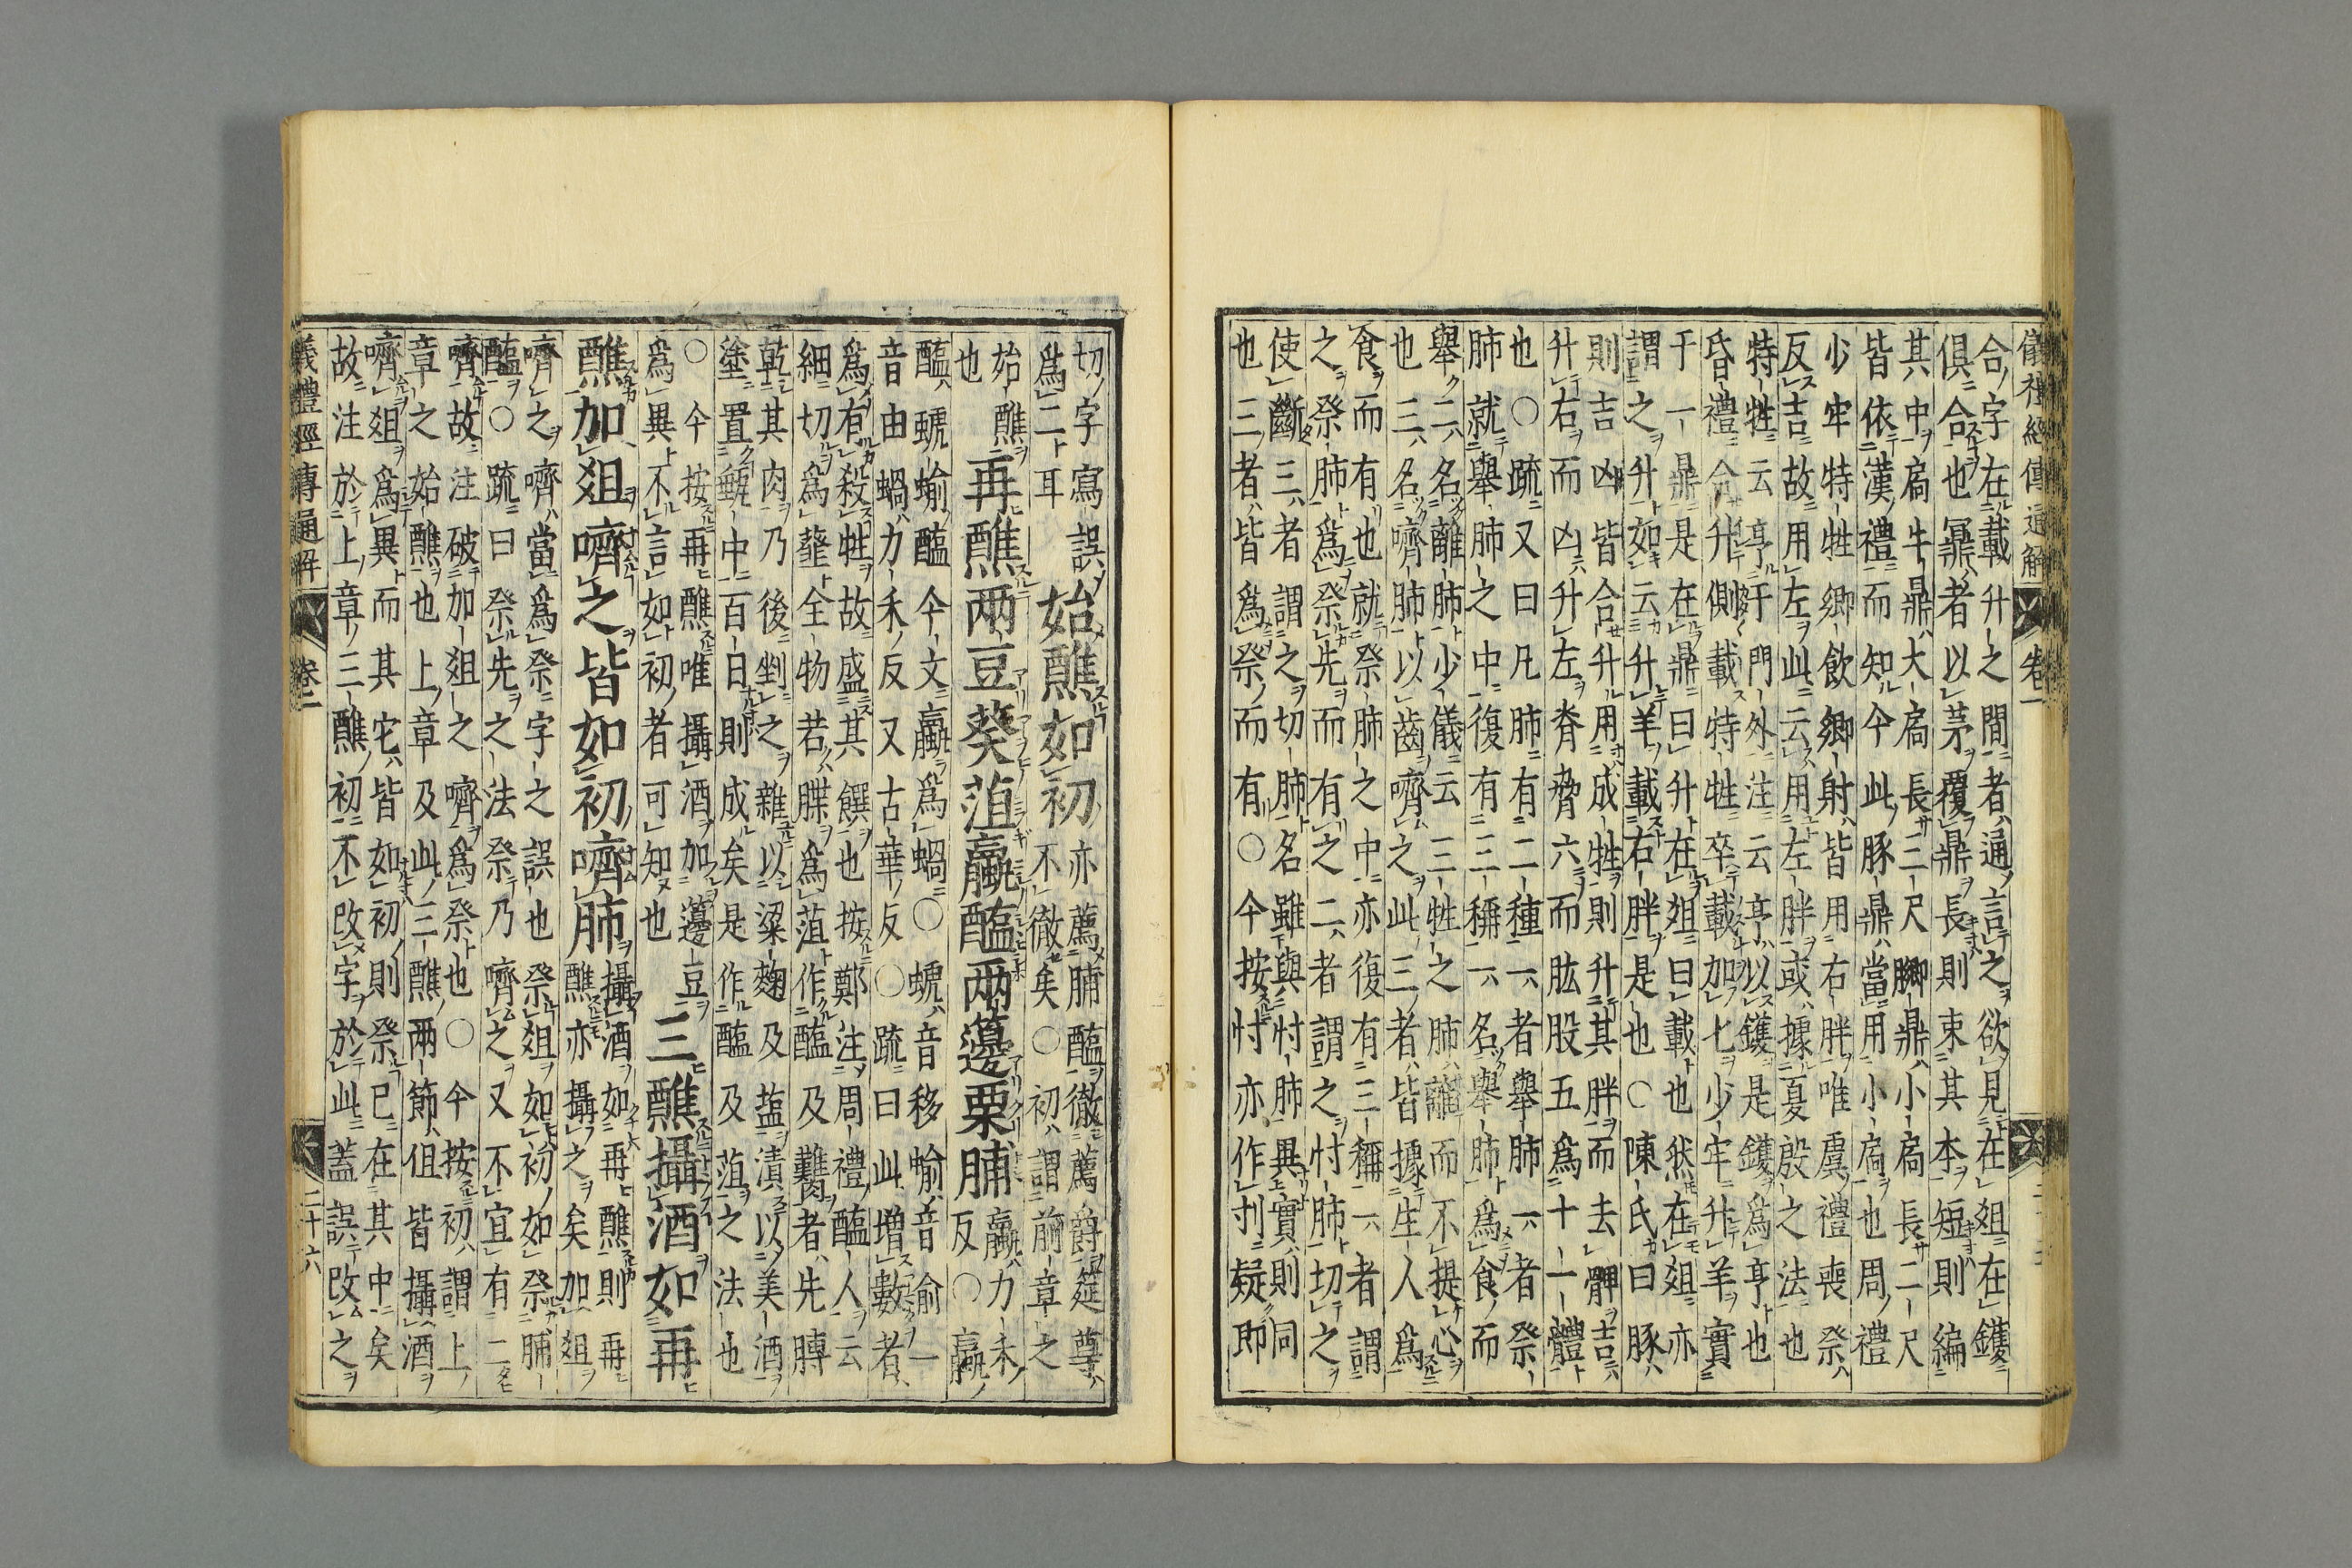 儀禮經傳通解 卷一
合字在載升之間者通言之欲見在俎在鑊
俱合也冪鼎者以茅覆鼎長則束其本短則編
其中扃牛鼎大扃長三尺膷鼎小扃長二尺
皆依漢禮而知今此豚鼎當用小扃也周禮
少牢特牲鄉飲鄉射皆用右胖唯虞禮喪祭
反吉故用左此云用左胖或據夏殷之法也
特牲云亨于門外注云亨以鑊是鑊爲亨也
昏禮合升側載特牲卒載加匕少牢升羊實
于一鼎是在鼎曰升在俎曰載也然在俎亦
謂之升如云升羊載右胖是也○陳氏曰豚
則吉凶皆合升用成牲則升其胖而去髀吉
升右而凶升左脊脅六而肱股五爲十一體
也○疏又曰凡肺有二種一者舉肺一者祭
肺就舉肺之中復有三稱一名舉肺爲食而
舉二名離肺少儀云三牲之肺離而不提心
也三名嚌肺以齒嚌之此三者皆據生人爲
食而有也就祭肺之中亦復有三稱一者謂
之祭肺爲祭先而有之二者謂之忖肺切之
使斷三者謂之切肺名雖與忖肺異實則同
也三者皆爲祭而有○今按忖亦作刌疑即
切字寫誤 始醮如初 亦薦脯醢徹薦爵筵尊
爲二耳 不徹矣○初謂前章之
始醮 再醮兩豆葵菹蠃醢兩籩栗脯 蠃力禾
也 反○蠃
醢蜾蝓醢今文蠃爲蝸○蜾音移蝓音俞一
音由蝸力禾反又古華反○疏曰此增數者
爲有殺牲故盛其饌也按鄭注周禮醢人云
細切爲虀全物若䐑爲菹作醢及臡者先膊
乾其肉乃後剉之雜以粱麴及鹽漬以美酒
塗置甀中百日則成矣是作醢及菹之法也
○今按再醮唯攝酒加籩豆 三醮攝酒如再
爲異不言如初者可知也
醮加俎嚌之皆如初嚌肺 攝酒如再醮則再
醮亦攝之矣加俎
嚌之嚌當爲祭字之誤也祭俎如初如祭脯
醢○疏曰祭先之法祭乃嚌之又不宜有二
嚌故注破加俎之嚌爲祭也○今按初謂上
章之始醮也上章及此三醮兩節俱皆攝酒
嚌俎爲異而其它皆如初則祭已在其中矣
故注於上章三醮初不改字於此蓋誤改之
儀禮經傳通解 卷二 二十六